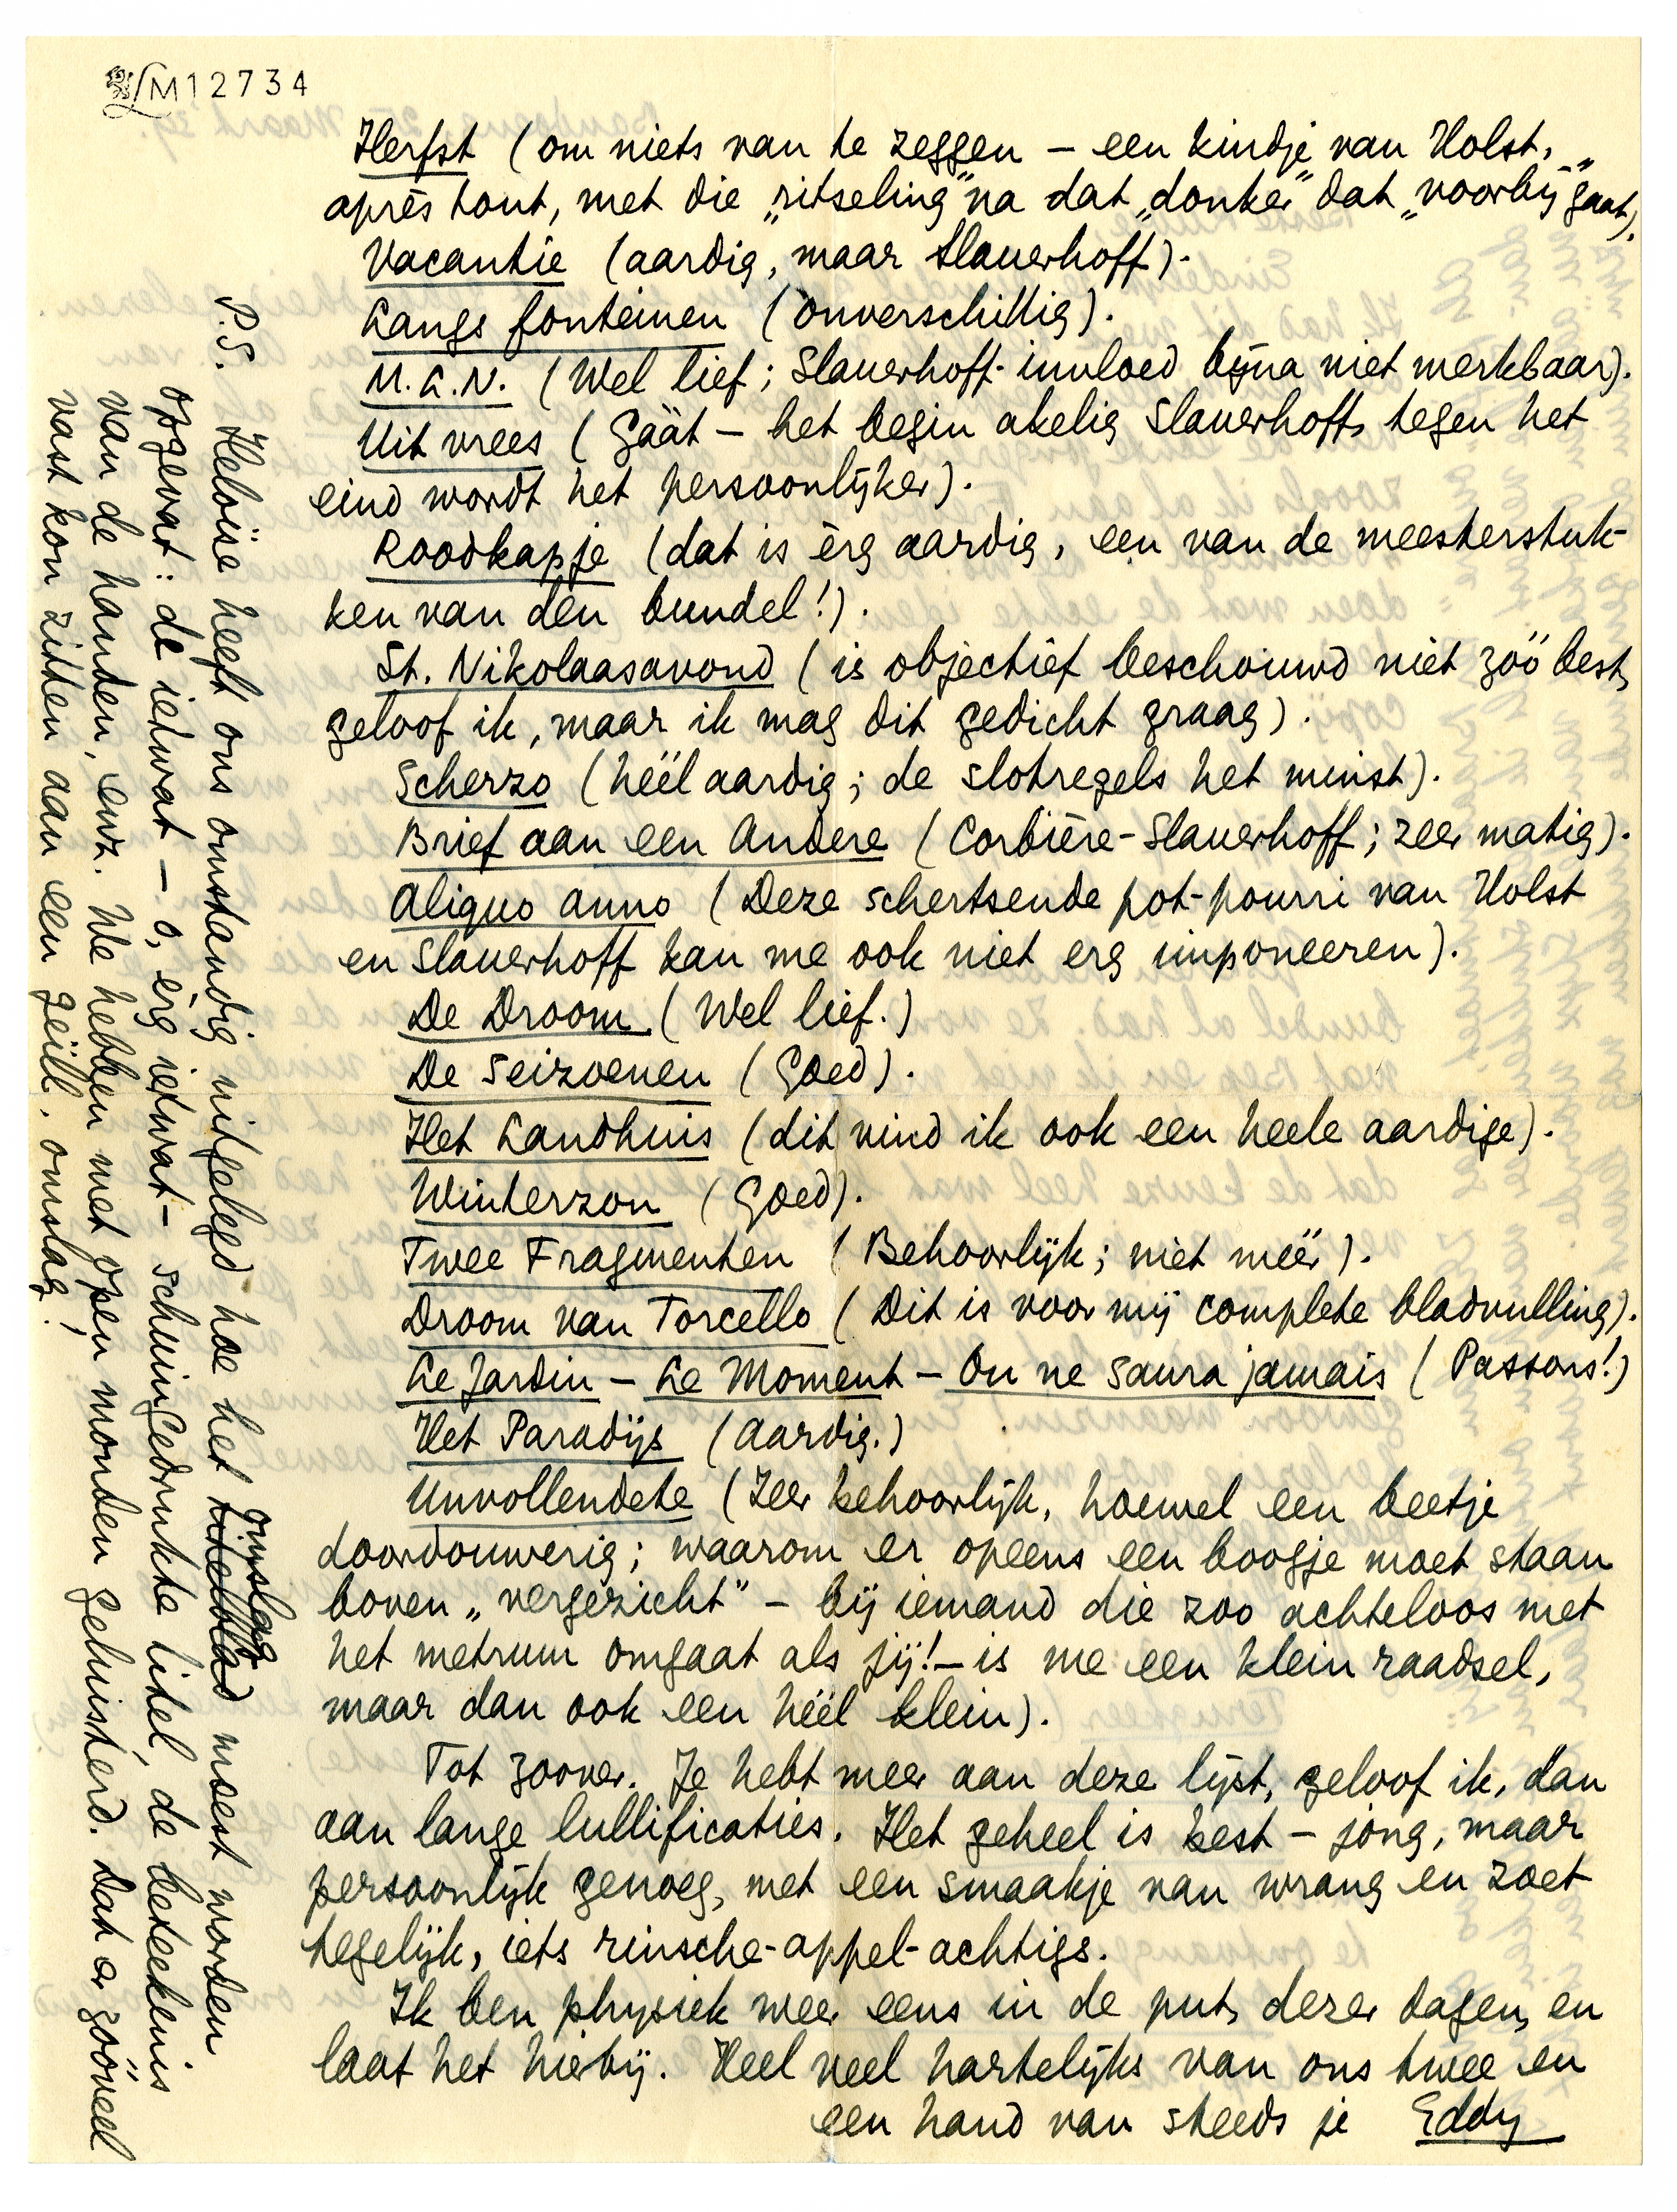 LM12734
Herfst (om niets van te zeggen – een kindje van Holst,
après tout, met die „ritseling” na dat „donker” dat „voorbij gaat”).
Vacantie (aardig, maar Slauerhoff).
Langs fonteinen (onverschillig).
M.L.N. (Wel lief; Slauerhoff-invloed bijna niet merkbaar).
Uit vrees (Gáát – het begin akelig Slauerhoff, tegen het
eind wordt het persoonlijker).
Roodkapje (dat is èrg aardig, een van de meesterstuk-
ken van dèn bundel!).
St. Nikolaasavond (is objectief beschouwd niet zóó best,
geloof ik, maar ik mag dit gedicht graag).
Scherzo (héél aardig; de slotregels het minst).
Brief aan een Andere (Corbière-Slauerhoff; zeer matig).
Aliquo anno (Deze schertsende pot-pourri van Holst
en Slauerhoff kan me ook niet erg imponeeren).
De Droom (Wel lief.)
De Seizoenen (Goed).
Het Landhuis (dit vind ik ook een heele aardige).
Winterzon (Goed).
Twee Fragmenten (Behoorlijk; niet méér).
Droom van Torcello (Dit is voor mij complete bladvulling).
Le Jardin – Le Moment – On ne saura jamais (Passons!)
Het Paradijs (Aardig.)
Unvollendete (Zeer behoorlijk, hoewel een beetje
doordouwerig; waarom er opeens een boogje moet staan
boven „vergezicht” – bij iemand die zoo achteloos met
het metrum omgaat als jij! – is me een klein raadsel,
maar dan ook een héél klein).
Tot zoover. Je hebt meer aan deze lijst, geloof ik, dan
aan lange lullificaties. Het geheel is best – jong, maar
persoonlijk genoeg, met een smaakje van wrang en zoet
tegelijk, iets rinsche-appel-achtigs.
Ik ben physiek weer eens in de put, dezer dagen, en
laat het hierbij. Heel veel hartelijks van ons twee en
een hand van steeds je Eddy
P.S. Heloïse heeft ons omstandig uitgelegd hoe het titelblad omslag moest worden
opgevat: dè iedwat – ò, èrg iedwat – schuingedrukte titel, de beteekenis
van de handen, enz. We hebben met open monden geluisterd. Dat er zóóveel
vast kon zitten aan een geïll. omslag!